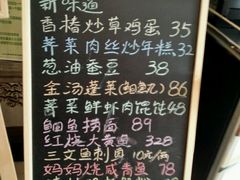 新味道
香椿炒草鸡蛋 35
荠菜肉丝炒年糕 32
葱油蚕豆 38
金汤蓬菜(鮰鱼丸) 86
荠菜鲜虾肉馄饨 48
鮰鱼捞面 89
红烧大黄鱼 328
三文鱼刺身
妈妈烧咸青鱼 78